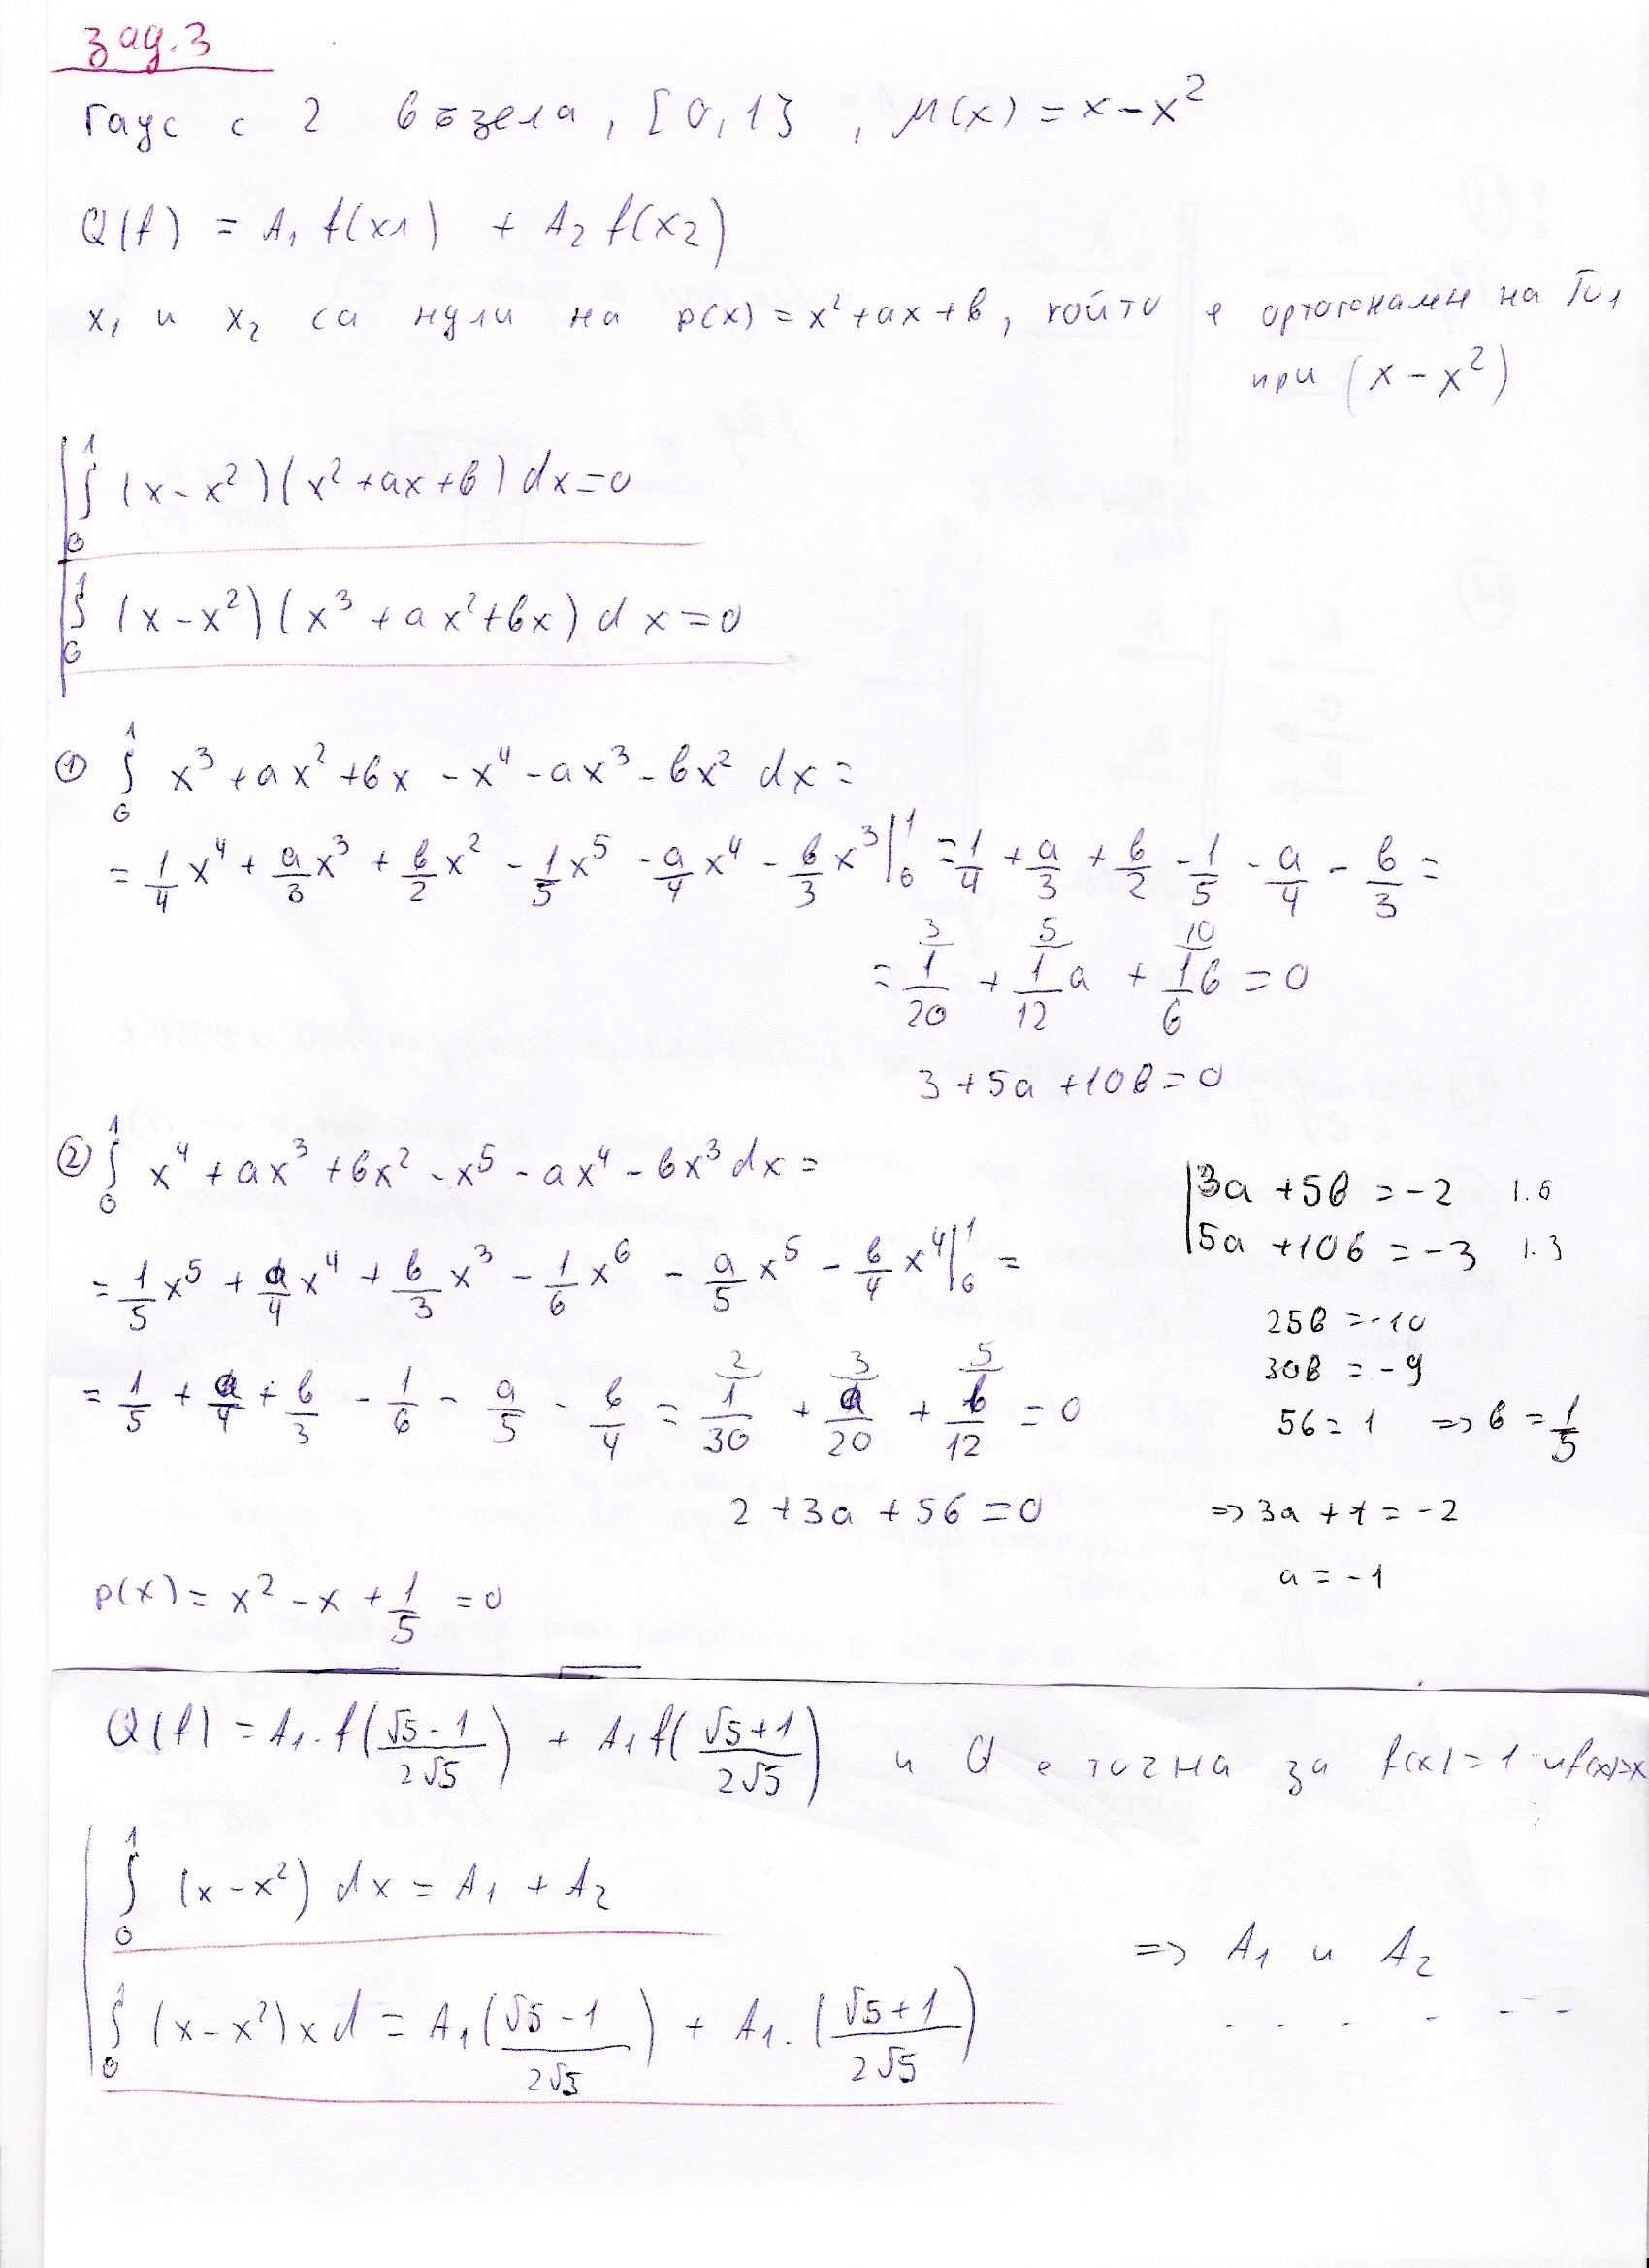 зад.3
Гаус с 2 възела, [0,1], μ(x) = x - x²
Q(f) = A₁ f(x1) + A₂ f(x₂)
x₁ и x₂ са нули на p(x) = x² + ax + b, който е ортогонален на π₁
при (x - x²)
∫₀¹ (x - x²)(x² + ax + b) dx = 0
∫₀¹ (x - x²)(x³ + ax² + bx) dx = 0
① ∫₀¹ x³ + ax² + bx - x⁴ - ax³ - bx² dx =
= 1/4 x⁴ + a/3 x³ + b/2 x² - 1/5 x⁵ - a/4 x⁴ - b/3 x³ |₀¹ = 1/4 + a/3 + b/2 - 1/5 - a/4 - b/3 =
3 5 10
= 1/20 + 1/12 a + 1/6 b = 0
3 + 5a + 10b = 0
② ∫₀¹ x⁴ + ax³ + bx² - x⁵ - ax⁴ - bx³ dx =
= 1/5 x⁵ + a/4 x⁴ + b/3 x³ - 1/6 x⁶ - a/5 x⁵ - b/4 x⁴ |₀¹ =
2 3 5
= 1/5 + a/4 + b/3 - 1/6 - a/5 - b/4 = 1/30 + a/20 + b/12 = 0
2 + 3a + 5b = 0
3a + 5b = -2 |.5
5a + 10b = -3 |.3
25b = -10
30b = -9
5b = 1 => b = 1/5
=> 3a + 1 = -2
a = -1
p(x) = x² - x + 1/5 = 0
Q(f) = A₁.f((√5 - 1)/(2√5)) + A₁ f((√5 + 1)/(2√5)) и Q е точна за f(x) = 1 и f(x)=x
∫₀¹ (x - x²) dx = A₁ + A₂
=> A₁ и A₂
∫₀¹ (x - x²) x d = A₁((√5 - 1)/(2√5)) + A₁.((√5 + 1)/(2√5))